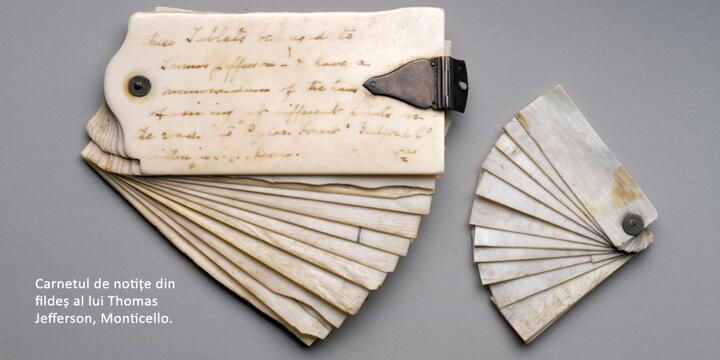 these Tablets belonged to
Thomas Jefferson & have a
memorandum of the
of at different points on
the road to "Poplar Forest" Bedford Co
written in
Carnetul de notițe din
fildeș al lui Thomas
Jefferson, Monticello.